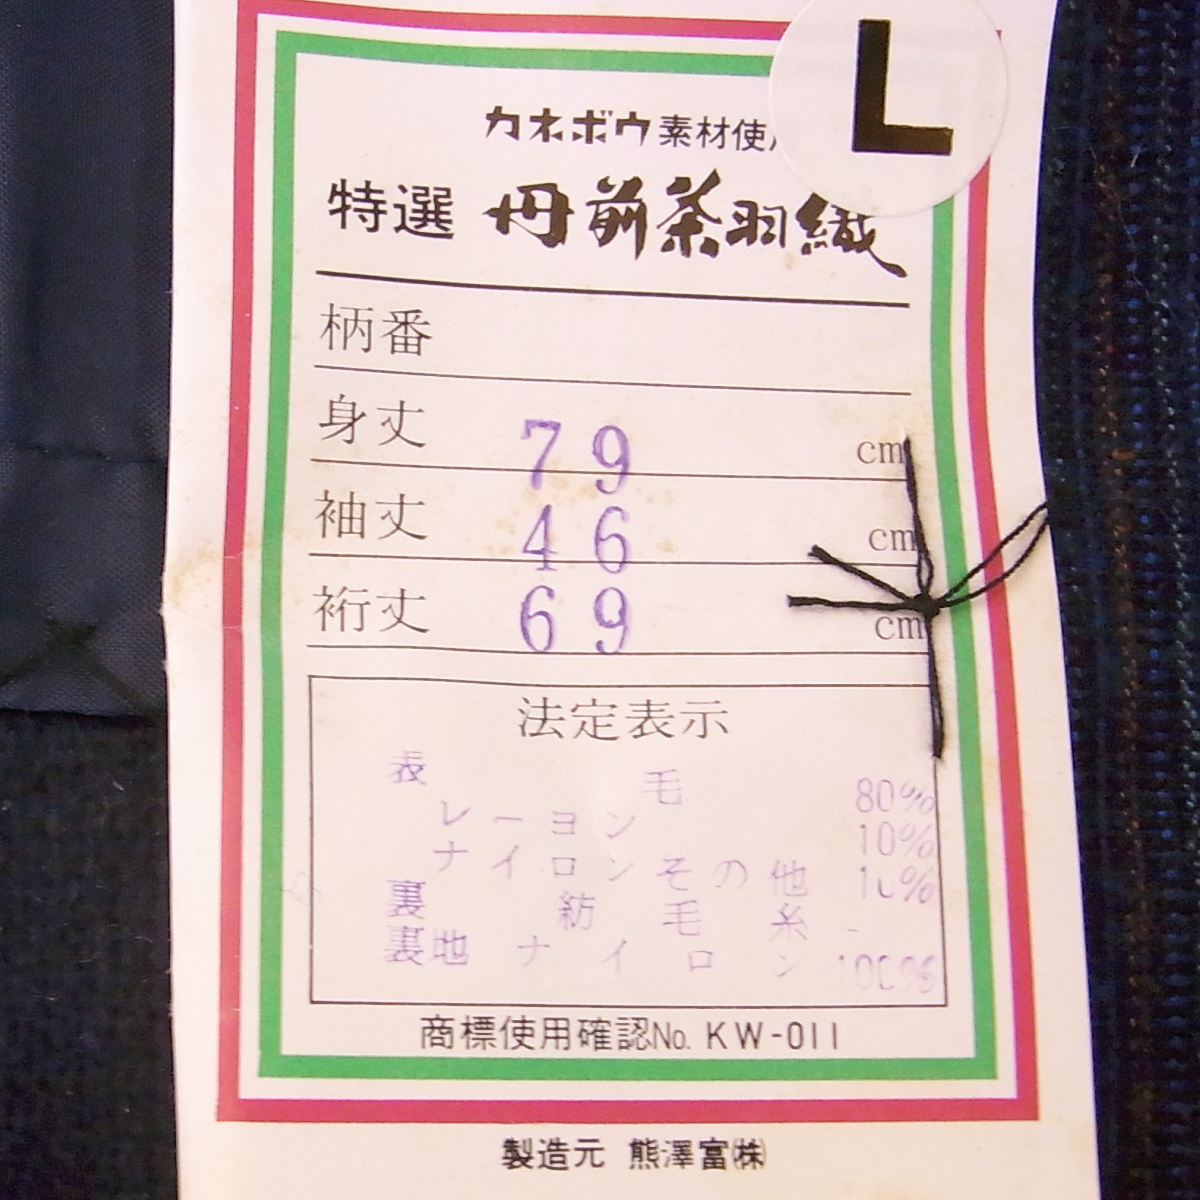 L
カネボウ素材使
特選 丹前茶羽織
柄番
身丈 79 cm
袖丈 46 cm
裄丈 69 cm
法定表示
表 毛 80%
レーヨン 10%
ナイロンその他 10%
裏 紡毛糸
裏地 ナイロン 100%
商標使用確認No. KW-011
製造元 熊澤富㈱